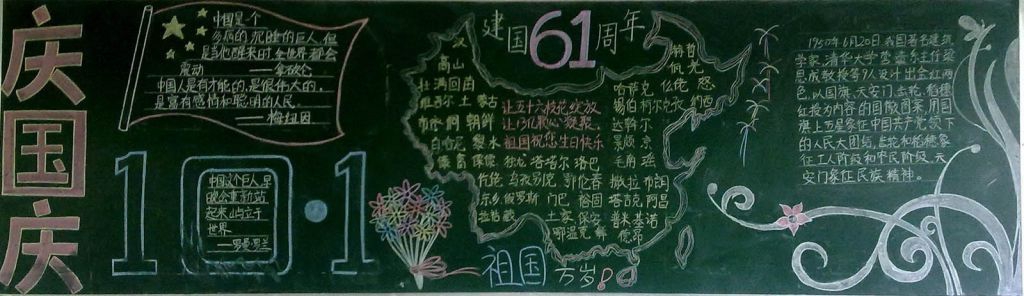 庆国庆
中国是个
多病的、沉睡的巨人,但
是当他醒来时,全世界都会
震动 ——拿破仑
中国人是有才能的,是很伟大的,
是富有感情和聪明的人民。
——梅纽因
10·1
中国这个巨人,早
晚会重新站
起来,屹立于
世界
——罗曼罗兰
建国61周年
汉
高山
壮 满 回 苗
维吾尔 土 蒙古
布依 侗 朝鲜
白 哈尼 黎 水
傣 畲 傈僳 独龙 塔塔尔 洛巴
仡佬 乌孜别克 鄂伦春
东乡 俄罗斯 门巴 裕固
拉祜 藏 土家 保安
鄂温克
让五十六枝花绽放
让13亿颗心凝聚,
祖国祝您生日快乐
赫哲
哈萨克 仫佬
锡伯 柯尔克孜 纳西
达斡尔
景颇 京
毛南 瑶
撒拉 布朗
塔吉克 阿昌
普米 基诺
德昂
祖国万岁!
1950年6月20日,我国著名建筑
学家,清华大学营建系主任梁
思成教授等9人设计出金红两
色,以国旗、天安门、齿轮、稻穗
红绶为内容的国徽图案。用国
旗上五星象征中国共产党领下
的人民大团结,齿轮和稻穗象
征工人阶级和农民阶级,天
安门象征民族精神。